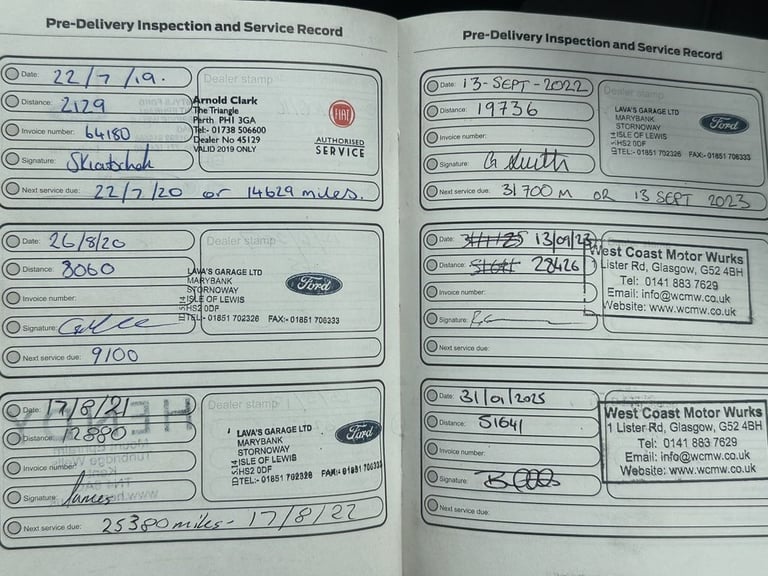 Pre-Delivery Inspection and Service Record
Date: 22/7/19.
Distance: 2129
Invoice number: 64180
Signature:
Next service due: 22/7/20 or 14629 miles.
Dealer stamp
Arnold Clark
The Triangle
Perth PH1 3GA
Tel:- 01738 506600
Dealer No 45129
VALID 2019 ONLY
FIAT
AUTHORISED
SERVICE
Date: 26/8/20
Distance: 8060
Invoice number:
Signature:
Next service due: 9100
Dealer stamp
LAVA'S GARAGE LTD
MARYBANK
STORNOWAY
ISLE OF LEWIS
HS2 0DF
TEL:- 01851 702326 FAX:- 01851 706333
Ford
Date: 17/8/21
Distance: 12880
Invoice number:
Signature:
Next service due: 25380 miles - 17/8/22
LAVA'S GARAGE LTD
MARYBANK
STORNOWAY
ISLE OF LEWIS
HS2 0DF
TEL:- 01851 702326 FAX:- 01851 706333
Ford
Pre-Delivery Inspection and Service Record
Date: 13-SEPT-2022
Distance: 19736
Invoice number:
Signature:
Next service due: 31700 M OR 13 SEPT 2023
Dealer stamp
LAVA'S GARAGE LTD
MARYBANK
STORNOWAY
ISLE OF LEWIS
HS2 0DF
TEL:- 01851 702326 FAX:- 01851 706333
Ford
Date: 13/09/23
Distance: 51641 28426
Invoice number:
Signature:
Next service due:
West Coast Motor Wurks
1 Lister Rd, Glasgow, G52 4BH
Tel: 0141 883 7629
Email: info@wcmw.co.uk
Website: www.wcmw.co.uk
Date: 31/01/2025
Distance: 51641
Invoice number:
Signature:
Next service due:
West Coast Motor Wurks
1 Lister Rd, Glasgow, G52 4BH
Tel: 0141 883 7629
Email: info@wcmw.co.uk
Website: www.wcmw.co.uk